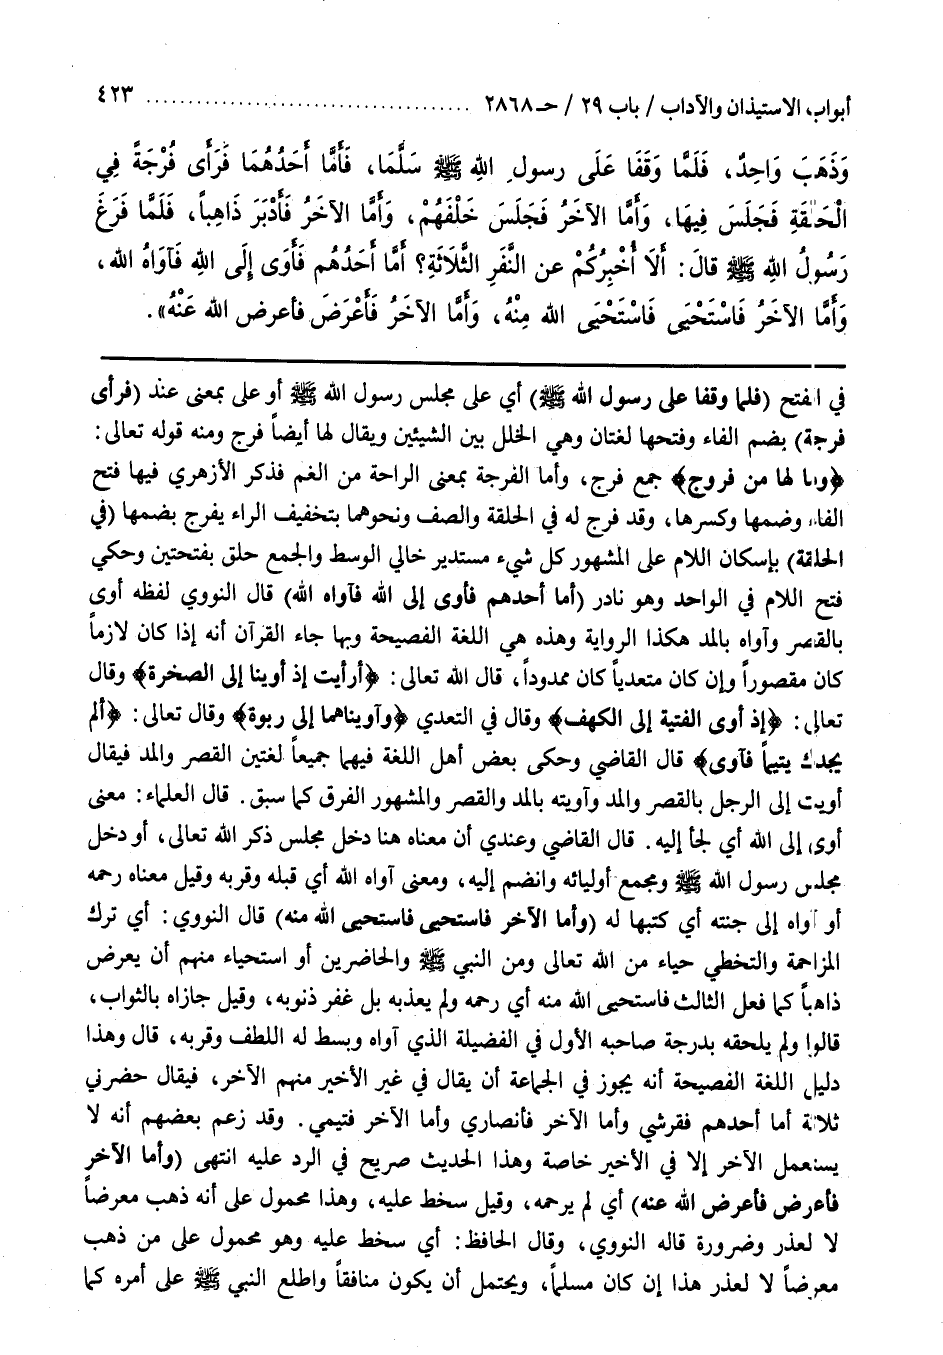 أبواب الاستيذان والآداب / باب ٢٩ / حـ ٢٨٦٨ ...................................... ٤٢٣
وَذَهَبَ وَاحِدٌ، فَلَمَّا وَقَفَا عَلَى رسول الله ﷺ سَلَّمَا، فَأَمَّا أَحَدُهُمَا فَرَأى فُرْجَةً فِي
الْحَلْقَةِ فَجَلَسَ فِيهَا، وَأَمَّا الآخَرُ فَجَلَسَ خَلْفَهُمْ، وَأَمَّا الآخَرُ فَأَدْبَرَ ذَاهِباً، فَلَمَّا فَرَغَ
رَسُولُ اللهِ ﷺ قالَ: أَلَا أُخْبِرُكُمْ عن النَّفَرِ الثَّلَاثَةِ؟ أَمَّا أَحَدُهُم فَأَوَى إِلَى اللهِ فَآوَاهُ الله،
وَأَمَّا الآخَرُ فَاسْتَحْيَى فَاسْتَحْيَى الله مِنْهُ، وَأَمَّا الآخَرُ فَأَعْرَضَ فأعرض الله عَنْهُ».
في الفتح (فلما وقفا على رسول الله ﷺ) أي على مجلس رسول الله ﷺ أو على بمعنى عند (فرأى
فرجة) بضم الفاء وفتحها لغتان وهي الخلل بين الشيئين ويقال لها أيضاً فرج ومنه قوله تعالى:
﴿وما لها من فروج﴾ جمع فرج، وأما الفرجة بمعنى الراحة من الغم فذكر الأزهري فيها فتح
الفاء وضمها وكسرها، وقد فرج له في الحلقة والصف ونحوهما بتخفيف الراء يفرج بضمها (في
الحلقة) بإسكان اللام على المشهور كل شيء مستدير خالي الوسط والجمع حلق بفتحتين وحكي
فتح اللام في الواحد وهو نادر (أما أحدهم فأوى إلى الله فآواه الله) قال النووي لفظه أوى
بالقصر وآواه بالمد هكذا الرواية وهذه هي اللغة الفصيحة وبها جاء القرآن أنه إذا كان لازماً
كان مقصوراً وإن كان متعدياً كان ممدوداً، قال الله تعالى: ﴿أرأيت إذ أوينا إلى الصخرة﴾ وقال
تعالى: ﴿إذ أوى الفتية إلى الكهف﴾ وقال في التعدي ﴿وآويناهما إلى ربوة﴾ وقال تعالى: ﴿ألم
يجدك يتيماً فآوى﴾ قال القاضي وحكى بعض أهل اللغة فيهما جميعاً لغتين القصر والمد فيقال
أويت إلى الرجل بالقصر والمد وآويته بالمد والقصر والمشهور الفرق كما سبق. قال العلماء: معنى
أوى إلى الله أي لجأ إليه. قال القاضي وعندي أن معناه هنا دخل مجلس ذكر الله تعالى، أو دخل
مجلس رسول الله ﷺ ومجمع أوليائه وانضم إليه، ومعنى آواه الله أي قبله وقربه وقيل معناه رحمه
أو آواه إلى جنته أي كتبها له (وأما الآخر فاستحيى فاستحيى الله منه) قال النووي: أي ترك
المزاحمة والتخطي حياء من الله تعالى ومن النبي ﷺ والحاضرين أو استحياء منهم أن يعرض
ذاهباً كما فعل الثالث فاستحيى الله منه أي رحمه ولم يعذبه بل غفر ذنوبه، وقيل جازاه بالثواب،
قالوا ولم يلحقه بدرجة صاحبه الأول في الفضيلة الذي آواه وبسط له اللطف وقربه، قال وهذا
دليل اللغة الفصيحة أنه يجوز في الجماعة أن يقال في غير الأخير منهم الآخر، فيقال حضرني
ثلاثة أما أحدهم فقرشي وأما الآخر فأنصاري وأما الآخر فتيمي. وقد زعم بعضهم أنه لا
يستعمل الآخر إلا في الأخير خاصة وهذا الحديث صريح في الرد عليه انتهى (وأما الآخر
فأعرض فأعرض الله عنه) أي لم يرحمه، وقيل سخط عليه، وهذا محمول على أنه ذهب معرضاً
لا لعذر وضرورة قاله النووي، وقال الحافظ: أي سخط عليه وهو محمول على من ذهب
معرضاً لا لعذر هذا إن كان مسلماً، ويحتمل أن يكون منافقاً واطلع النبي ﷺ على أمره كما